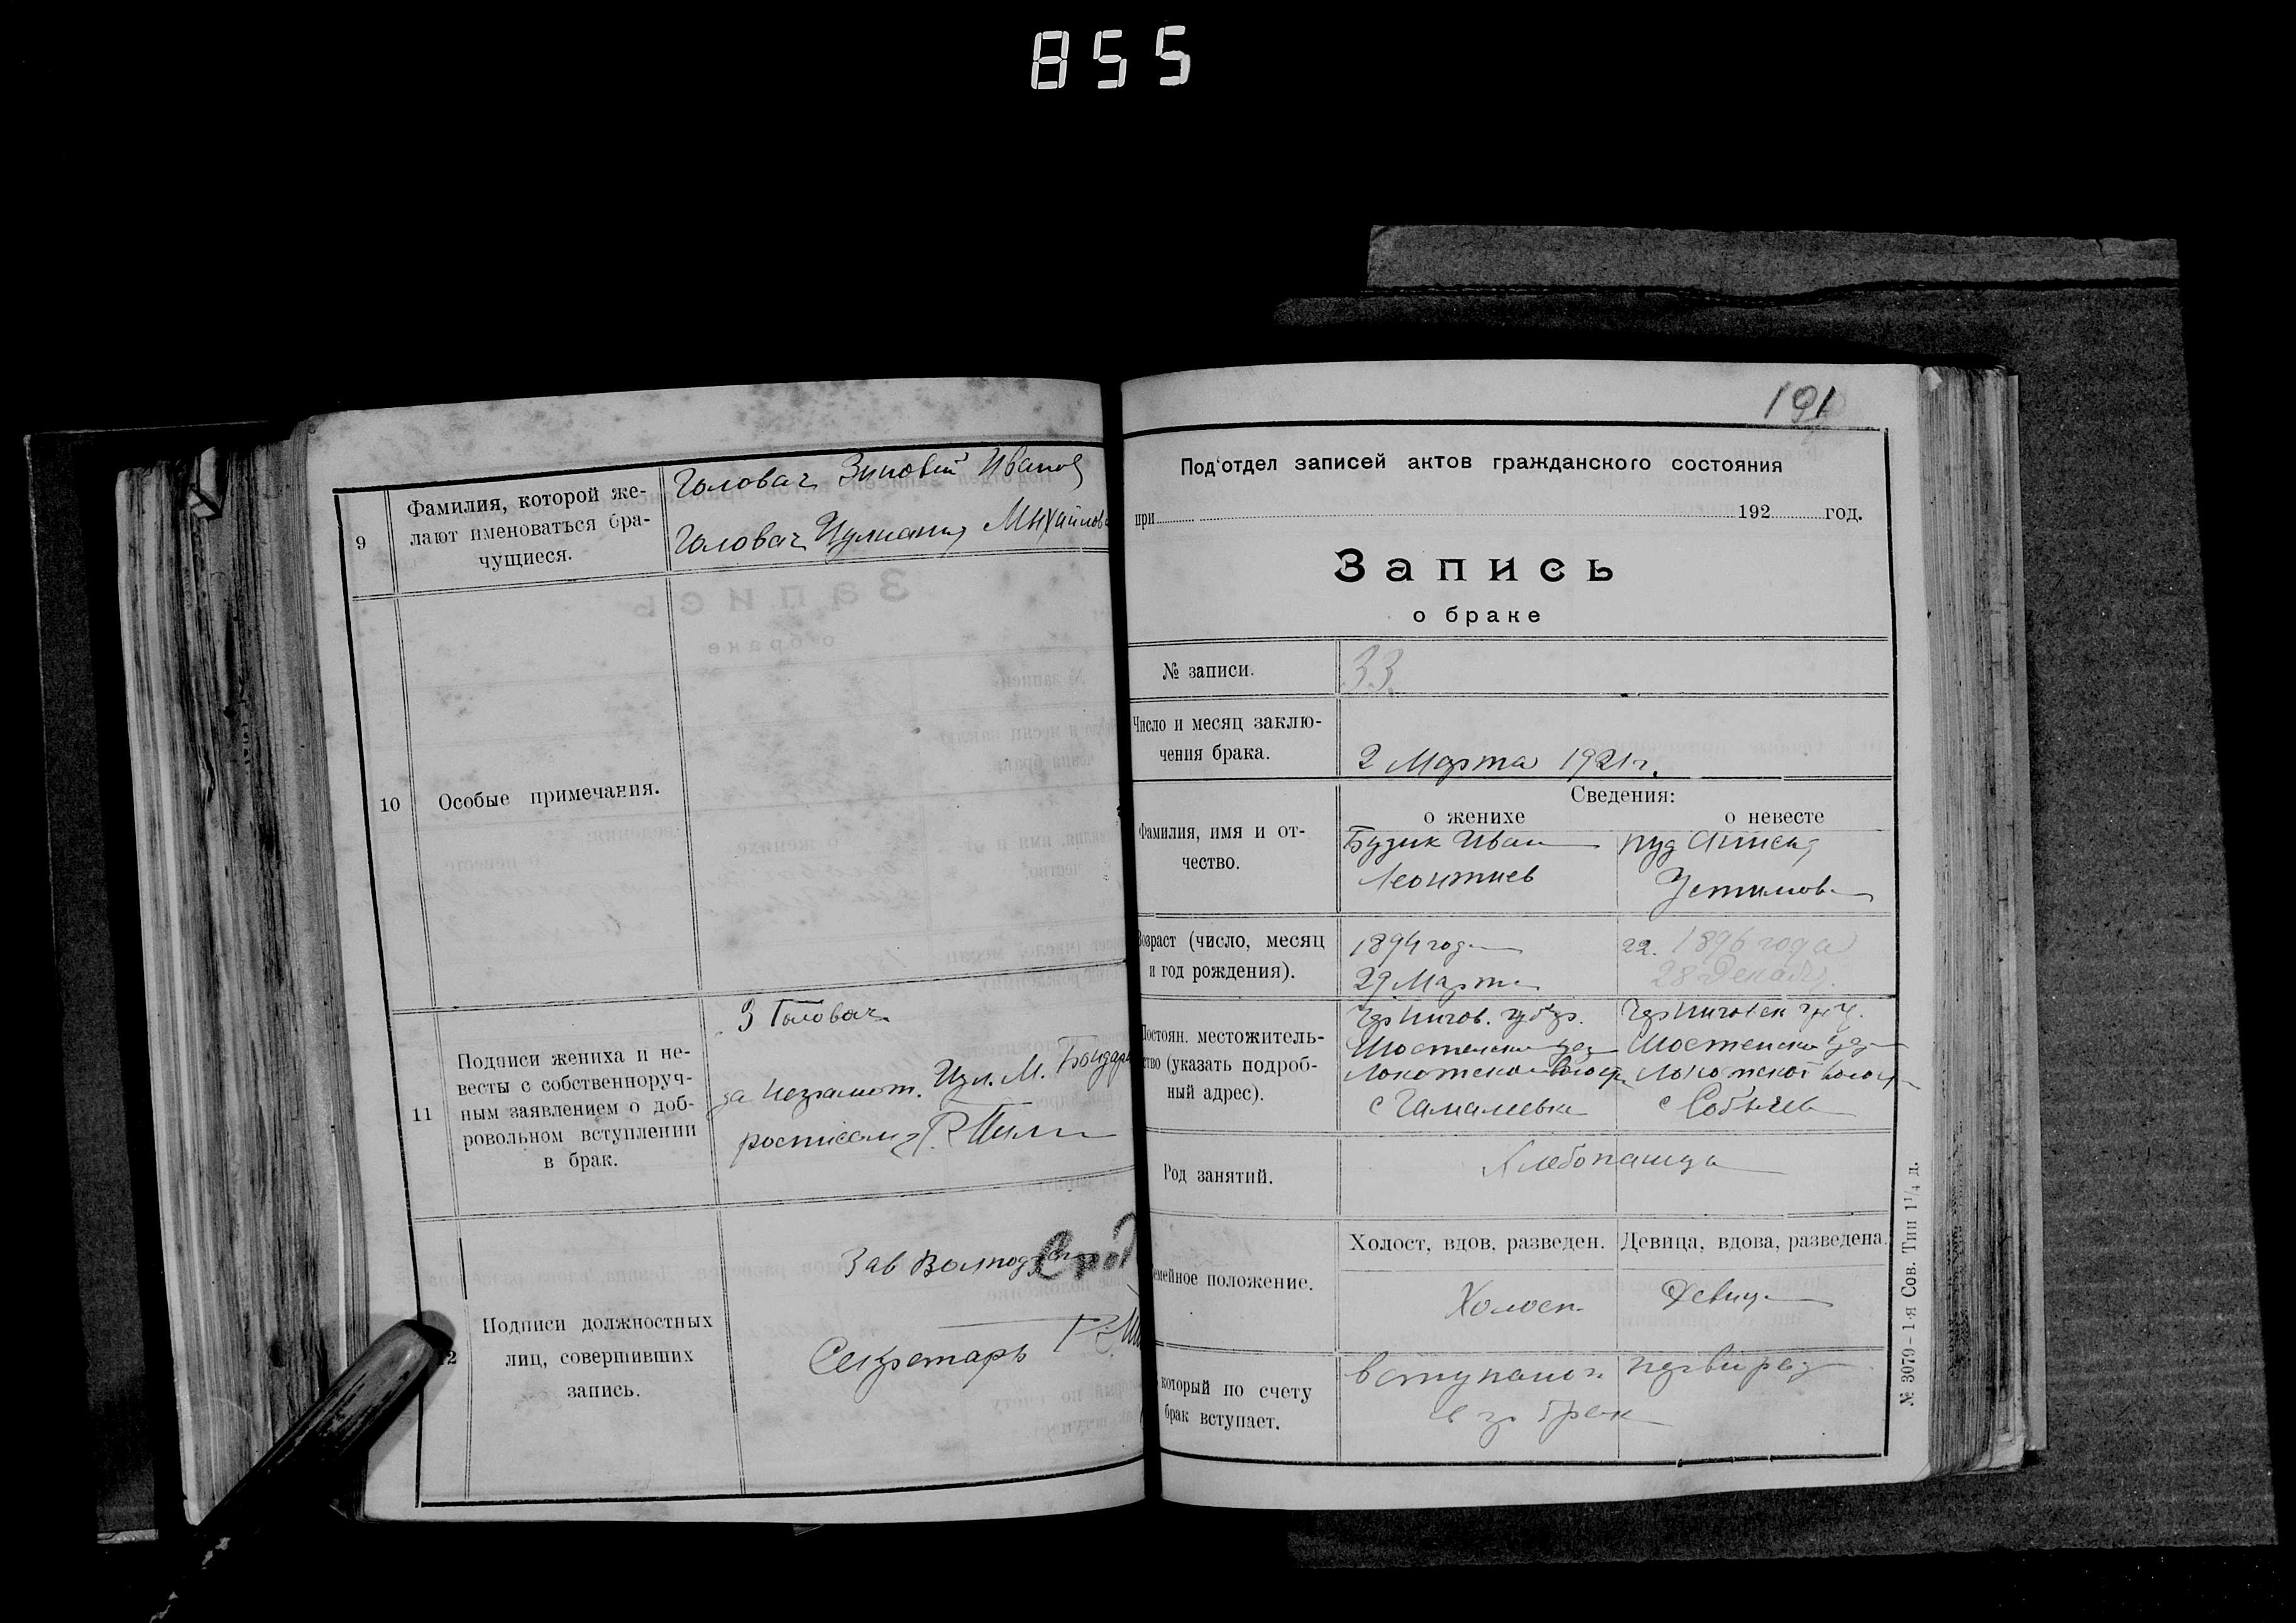 855
9
Фамилия, которой же-
лают именоваться бра-
чущиеся.
Головач Зиновий Иванов
Головач Иулиания Михайлова
10
Особые примечания.
11
Подписи жениха и не-
весты с собственноруч-
ным заявлением о доб-
ровольном вступлении
в брак.
З Головач
за неграмот. Иул. М. Бондарь
12
Подписи должностных
лиц, совершивших
запись.
Зав
Секретарь
191
Под'отдел записей актов гражданского состояния
при 192 год.
Запись
о браке
№ записи.
33
Число и месяц заклю-
чения брака.
2 Марта 1921 г.
Сведения:
о женихе о невесте
Фамилия, имя и от-
чество.
Бузик Иван
Леонтиев
Пуд
Устимов
Возраст (число, месяц
и год рождения).
1894 года
29 Марта
22. 1896 года
28 Декабр.
Постоян. местожитель-
ство (указать подроб-
ный адрес).
Чернигов. губер.
Шостенского
Локотской волост
с Гамалеевка
Шостенского
Локотской волост
с Собычев
Род занятий.
Хлебопашца
Семейное положение.
Холост, вдов, разведен. Девица, вдова, разведена.
Холост Девица
который по счету
брак вступает.
вступают первый раз
брак
№ 3079 – 1-я Сов. Тип 1 1/4 д.